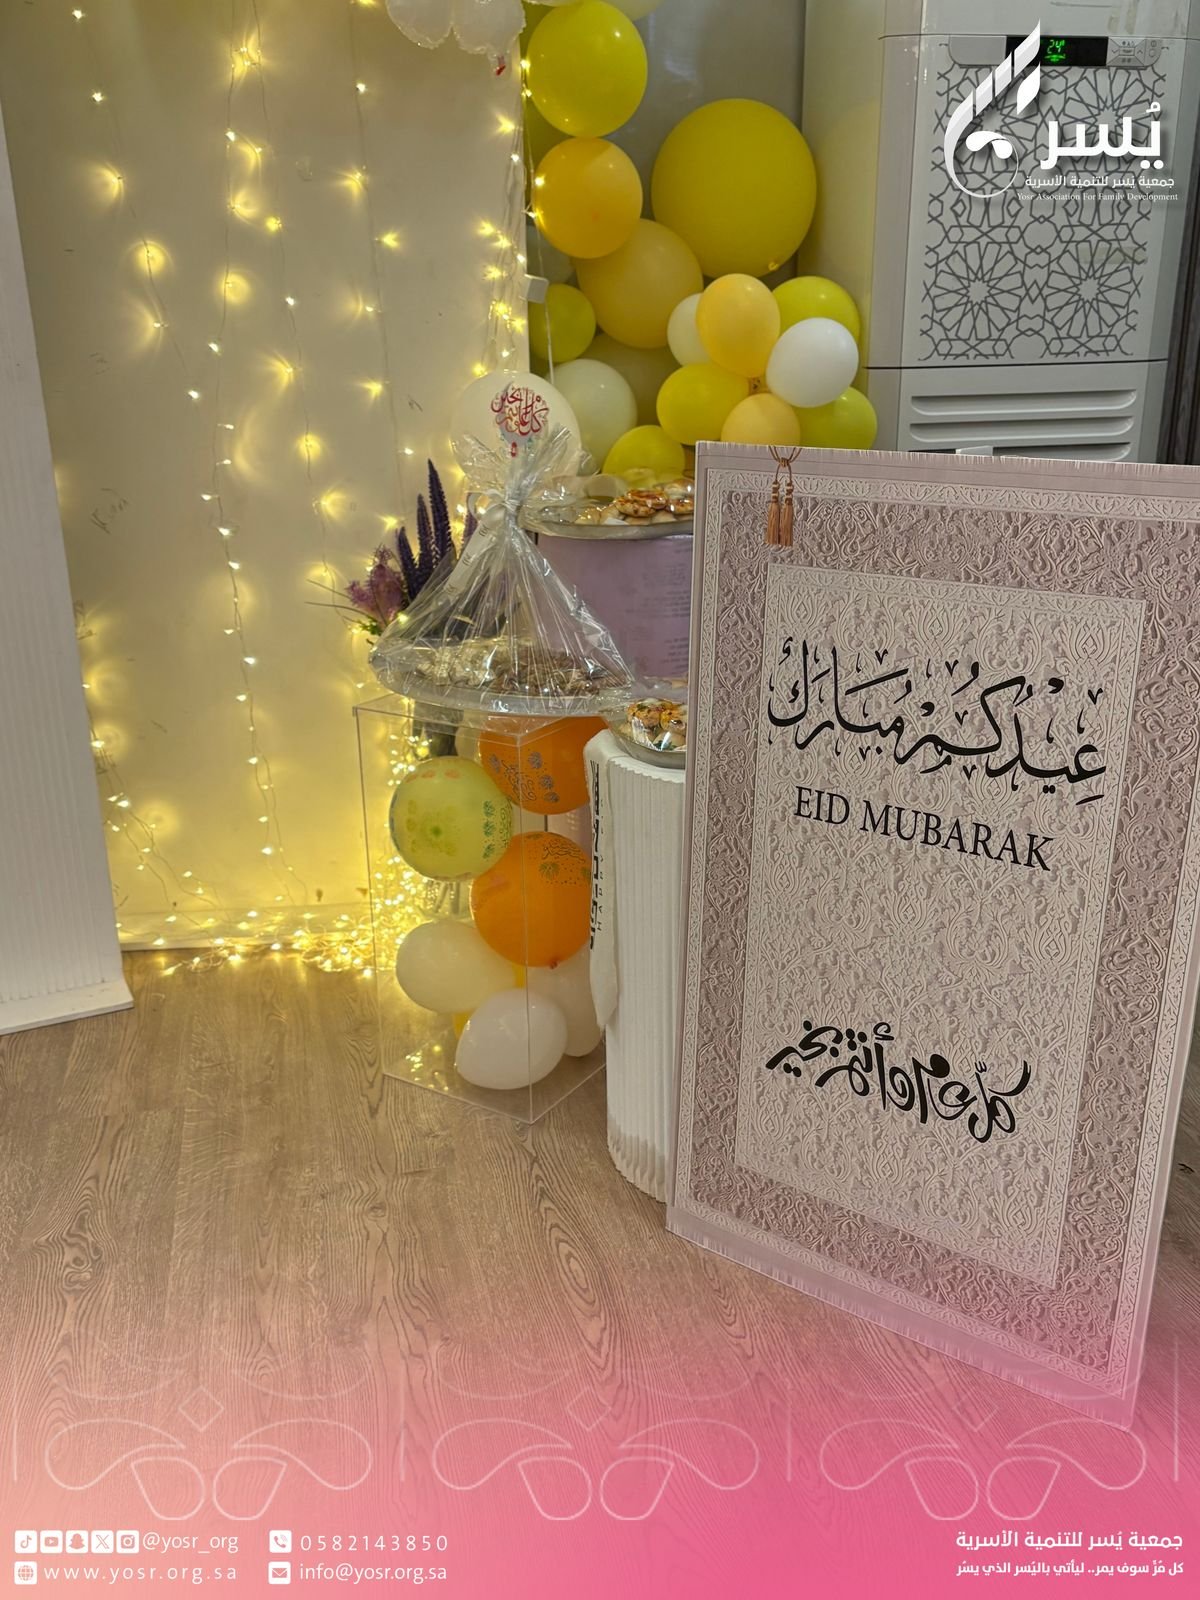 24°
يُسر
جمعية يُسر للتنمية الأسرية
Yosr Association For Family Development
كل عام وأنتم بخير
عِيدُكُمْ مُبَارَكٌ
EID MUBARAK
كلّ عام وأنتم بخير
@yosr_org
0582143850
www.yosr.org.sa
info@yosr.org.sa
جمعية يُسر للتنمية الأسرية
كل مُرٍّ سوف يمر.. ليأتي باليُسر الذي يسرُ